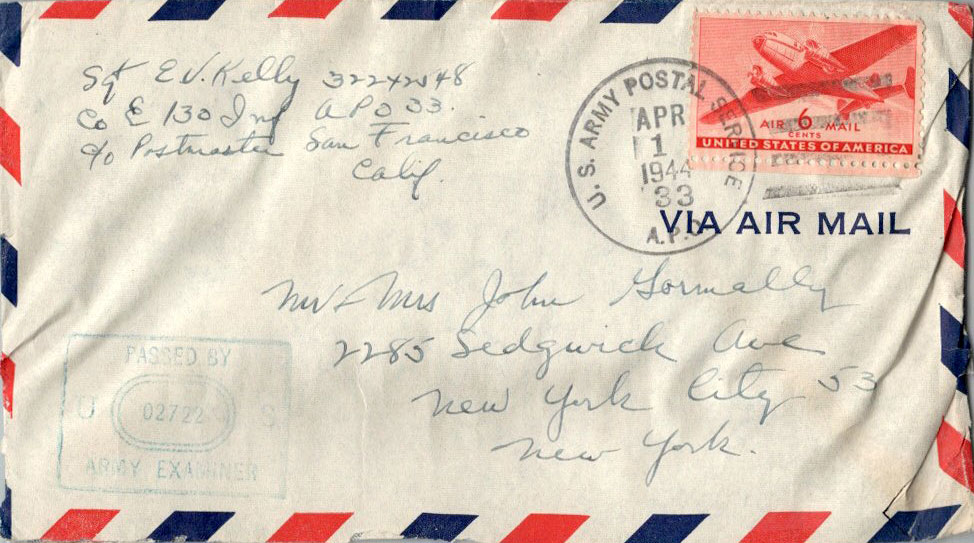 Sgt E V. Kelly 32242548
Co E 130 Inf APO 33.
c/o Postmaster San Francisco
Calif.
U.S. ARMY POSTAL SERVICE
APR
1
1944
33
A.P.O.
AIR 6 MAIL
CENTS
UNITED STATES OF AMERICA
VIA AIR MAIL
Mr & Mrs John Gormally
2285 Sedgwick Ave
New York City 53
New York.
PASSED BY
U 02722 S
ARMY EXAMINER